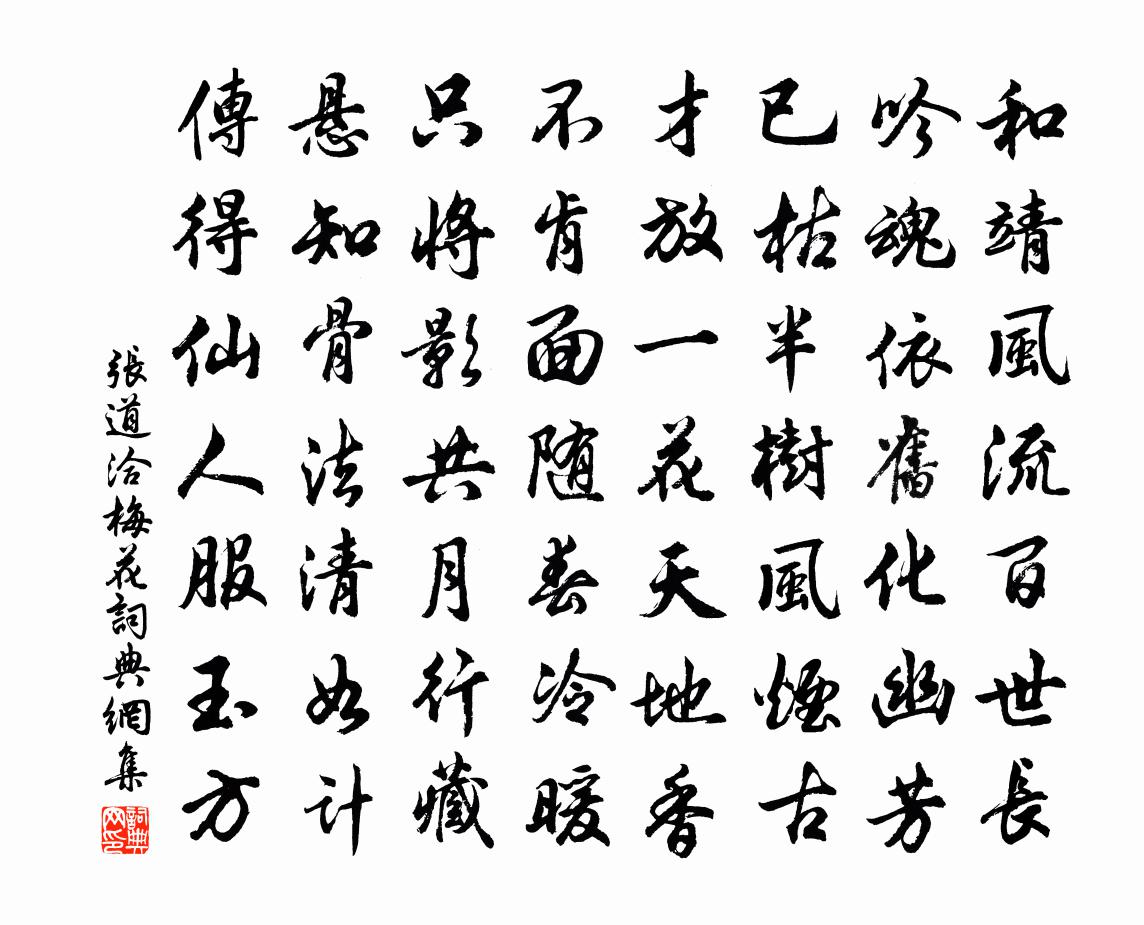 和靖風流百世長
吟魂依舊化幽芳
已枯半樹風煙古
才放一花天地香
不肯面隨春冷暖
只將影共月行藏
懸知骨法清如計
傳得仙人服玉方
張道洽梅花詞典網集
詞典網印